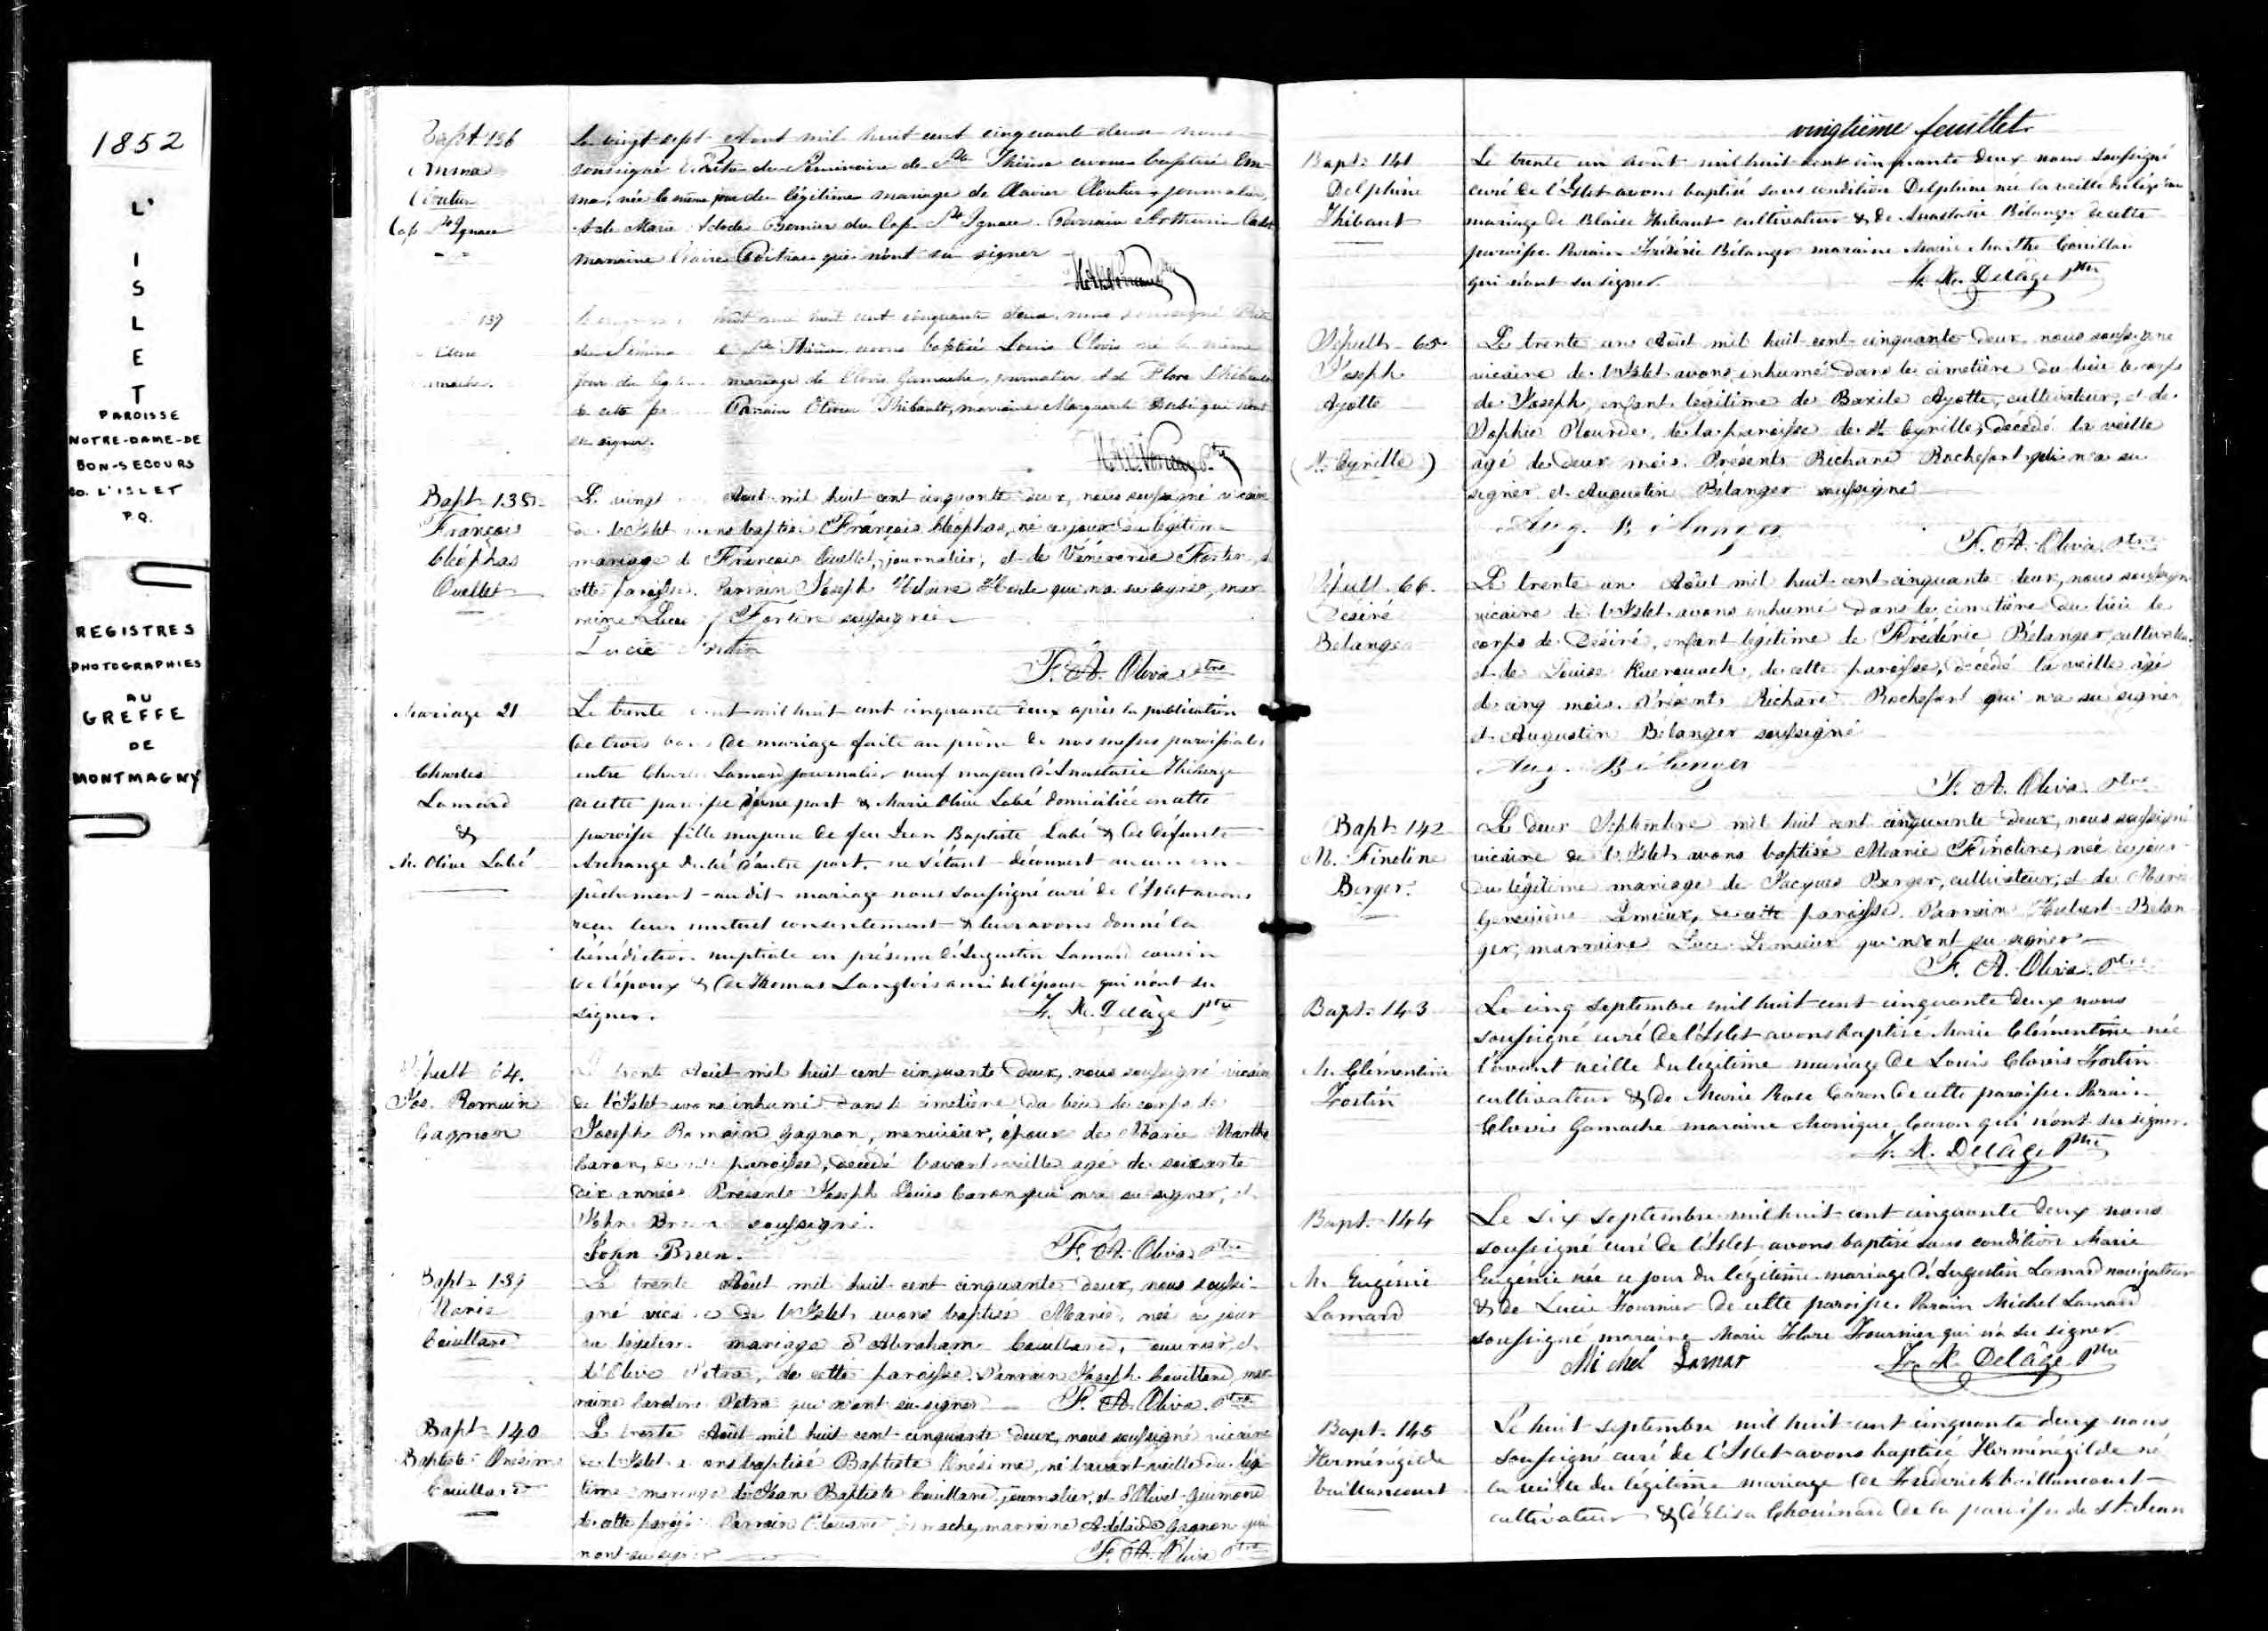 1852
L'
I
S
L
E
T
PAROISSE
NOTRE-DAME-DE
BON-SECOURS
CO. L'ISLET
P.Q.
REGISTRES
PHOTOGRAPHIES
AU
GREFFE
DE
MONTMAGNY
Bapt 136
Emma
Cloutier
Cap St Ignace
Le vingt-sept Aout mil huit cent cinquante deux nous
soussigné Prêtre du Séminaire de Ste Thérèse avons baptisé Em-
ma, née le même jour du légitime mariage de Clavier Cloutier, journalier,
& de Marie Bernier du Cap St Ignace. Parrain
marraine Claire qui n'ont su signer
137
août mil huit cent cinquante deux, nous soussigné
Ste Thérèse avons baptisé Louis Clovis né le même
jour du mariage de Clovis Gamache, journalier et de Flore Thibault
de cette Parrain Olivier Thibault, marraine Marguerite Dubé qui n'ont
su signer.
Bapt 138
François
Cléophas
Ouellet
Le vingt Aout mil huit cent cinquante deux, nous soussigné vicaire
de l'Islet avons baptisé François Cléophas, né ce jour du légitime
mariage de François Ouellet, journalier, et de Vénérande Fortin, de
cette paroisse. Parrain Joseph qui n'a su signer, mar
raine Luce Fortin soussignée
Lucie Fortin
F. A. Oliva Ptre
Mariage 21
Charles
Lamard
&
M. Olive Labé
Le trente août mil huit cent cinquante deux après la publication
de trois bans de mariage faite au prône de nos messes paroissiales
entre Charles Lamard journalier veuf majeur d'Anastasie Thiberge
de cette paroisse d'une part & Marie Olive Labé domiciliée en cette
paroisse fille majeure de feu Jean Baptiste Labé & de défunte
Archange Dubé d'autre part. ne s'étant découvert aucun em-
pêchement au dit mariage nous soussigné curé de l'Islet avons
reçu leur mutuel consentement & leur avons donné la
bénédiction nuptiale en présence d'Augustin Lamard cousin
de l'époux & de Thomas Langlois ami de l'épouse qui n'ont su
signer.
F. X. Delâge Ptre
Sépult 64.
Jos. Romain
Gagnon
Le trente Août mil huit cent cinquante deux, nous soussigné vicaire
de l'Islet avons inhumé dans le cimetière du lieu le corps de
Joseph Romain Gagnon, menuisier, époux de Marie Marthe
Caron, de cette paroisse, décédé l'avant veille agé de soixante
dix années. Présents Joseph Louis Caron qui n'a su signer, et
John Breen soussigné.
John Breen.
F. A. Oliva Ptre
Bapt 139
Marie
Couillard
Le trente Août mil huit cent cinquante deux, nous soussi-
gné vicaire de l'Islet avons baptisé Marie, née ce jour
du légitime mariage d'Abraham Couillard, ouvrier, et
d'Olive Petra, de cette paroisse. Parrain Joseph Couillard, mar-
raine Caroline Petra qui n'ont su signer
F. A. Oliva Ptre
Bapt 140
Baptiste Onésime
Couillard
Le trente Août mil huit cent cinquante deux, nous soussigné vicaire
de l'Islet avons baptisé Baptiste Onésime, né l'avant veille du légi
time mariage de Jean Baptiste Couillard, journalier, et d'Olive Guimond
de cette paroisse Parrain Edouard Gamache, marraine Adélaïde Gagnon qui
n'ont su signer
F. A. Oliva Ptre
vingtième feuillet
Bapt. 141
Delphine
Thibaut
Le trente un août mil huit cent cinquante deux nous soussigné
curé de l'Islet avons baptisé sous condition Delphine née la veille du légitime
mariage de Blaise Thibaut cultivateur & de Anastasie Bélanger de cette
paroisse. Parain Frédéric Bélanger maraine Marie Marthe Couillard
qui n'ont su signer.
F. X. Delâge Ptre
Sépult 65
Joseph
Ayotte
(St. Cyrille)
Le trente un Août mil huit cent cinquante deux, nous soussigné
vicaire de l'Islet avons inhumé dans le cimetière du lieu le corps
de Joseph, enfant légitime de Bazile Ayotte, cultivateur, et de
Sophie Plourde, de la paroisse de St Cyrille, décédé la veille
agé de deux mois. Présents Richard Rochefort qui n'a su
signer et Augustin Bélanger soussigné
Aug. Bélanger
F. A. Oliva Ptre
Sépult. 66.
Désiré
Bélanger
Le trente un Août mil huit cent cinquante deux, nous soussigné
vicaire de l'Islet avons inhumé dans le cimetière du lieu le
corps de Désiré, enfant légitime de Frédéric Bélanger, cultivateur
et de Louise Kuerouack, de cette paroisse, décédé la veille agé
de cinq mois. Présents Richard Rochefort qui n'a su signer
et Augustin Bélanger soussigné
Aug. Bélanger
F. A. Oliva Ptre
Bapt 142
M. Finoline
Berger.
Le deux Septembre mil huit cent cinquante deux, nous soussigné
vicaire de l'Islet avons baptisé Marie Finoline, née ce jour
du légitime mariage de Jacques Berger, cultivateur, et de Marie
Geneviève Lemieux, de cette paroisse. Parrain Hubert Bélan
ger, marraine Luce Lemieux qui n'ont su signer
F. A. Oliva Ptre
Bapt. 143
M. Clémentine
Fortin
Le cinq septembre mil huit cent cinquante deux nous
soussigné curé de l'Islet avons baptisé Marie Clémentine née
l'avant veille du légitime mariage de Louis Clovis Fortin
cultivateur & de Marie Rose Caron de cette paroisse. Parain
Clovis Gamache maraine Monique Caron qui n'ont su signer.
F. X. Delâge Ptre
Bapt. 144
M. Eugénie
Lamard
Le six septembre mil huit cent cinquante deux nous
soussigné curé de l'Islet avons baptisé sous condition Marie
Eugénie née ce jour du légitime mariage d'Augustin Lamard navigateur
& de Lucie Fournier de cette paroisse. Parain Michel Lamard
soussigné maraine Marie Flore Fournier qui n'a su signer
Michel Lamar
F. X. Delâge Ptre
Bapt. 145
Herménégilde
Vaillancourt
Le huit septembre mil huit cent cinquante deux nous
soussigné curé de l'Islet avons baptisé Herménégilde né
la veille du légitime mariage de Frederick Vaillancourt
cultivateur & d'Elisa Chouinard de la paroisse de St. Jean